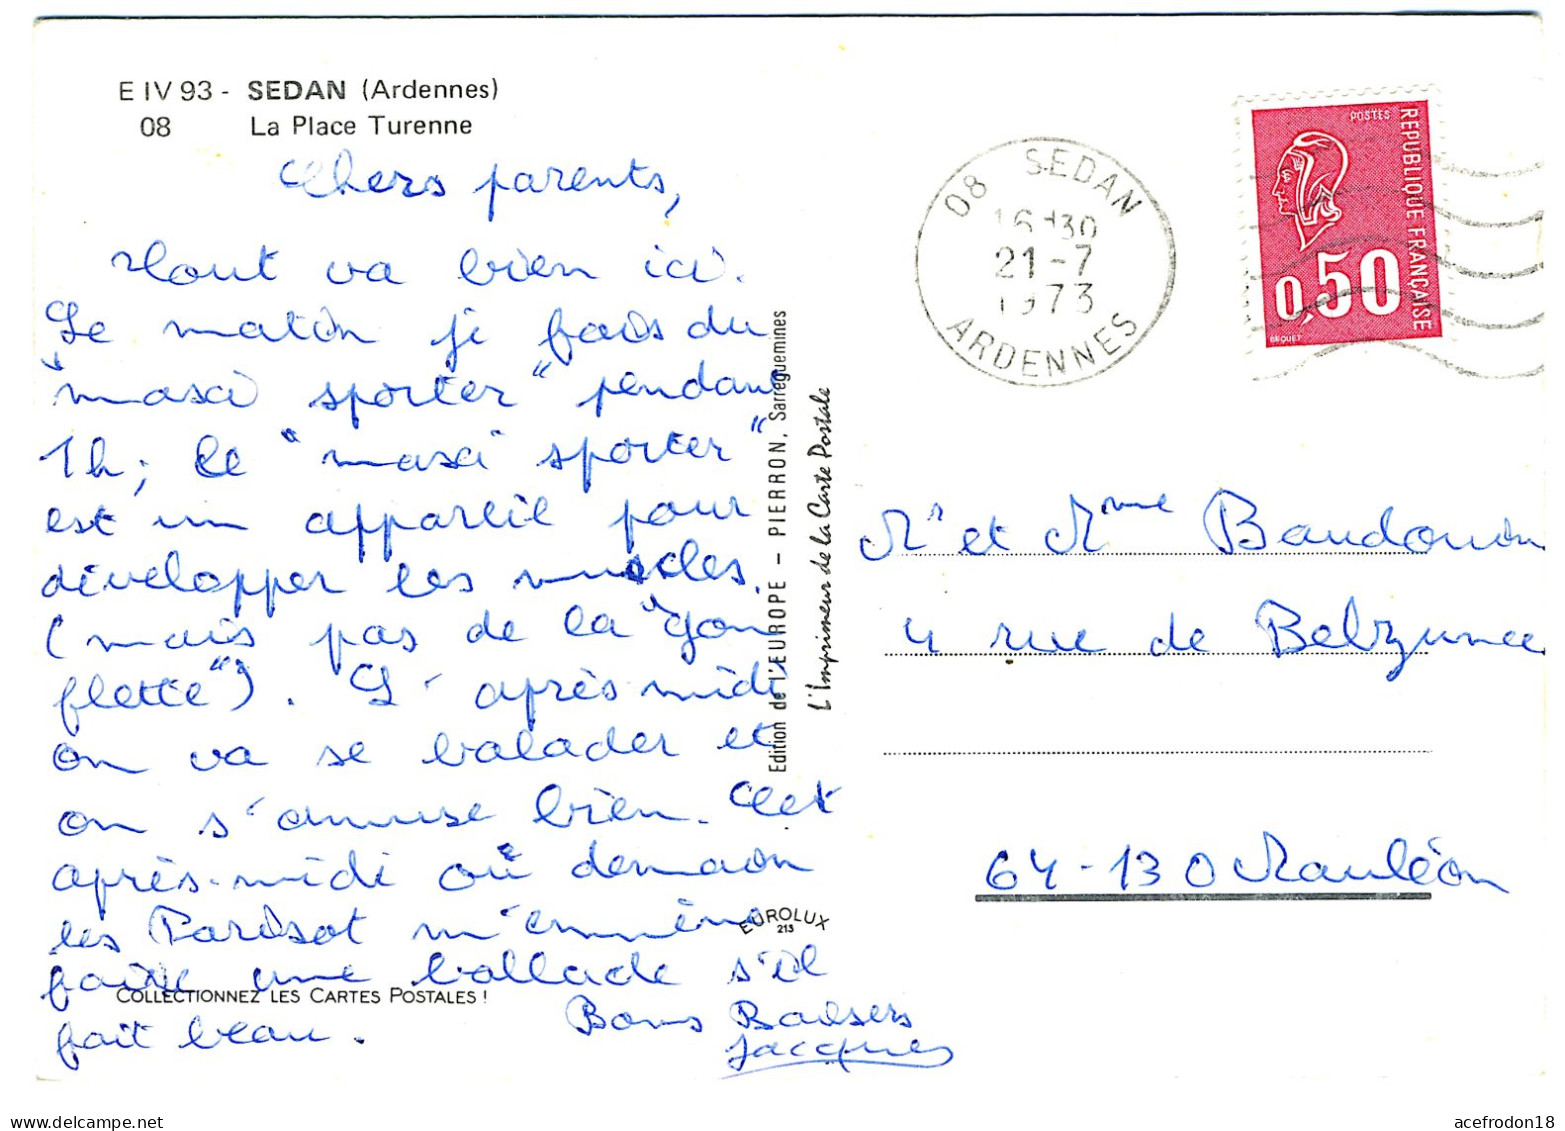 E IV 93 - SEDAN (Ardennes)
08 La Place Turenne
Chers parents,
Tout va bien ici.
Le matin je fais du
"maxi sporter" pendant
1h; le "maxi sporter"
est un appareil pour
développer les muscles.
(mais pas de la "gon
flette"). L'après midi
on va se balader et
on s'amuse bien. Cet
après-midi où demain
les Parisot m'emmène
faire une ballade s'il
fait beau. Bons Baisers
Jacques
COLLECTIONNEZ LES CARTES POSTALES !
EUROLUX
213
Edition de l'EUROPE - PIERRON, Sarreguemines
L'Imprimeur de la Carte Postale
08 SEDAN
16H30
21-7
1973
ARDENNES
POSTES
REPUBLIQUE FRANÇAISE
0,50
BEQUET
Mr et Mme Baudouin
4 rue de Belzunce
64-130 Mauléon
acefrodon18